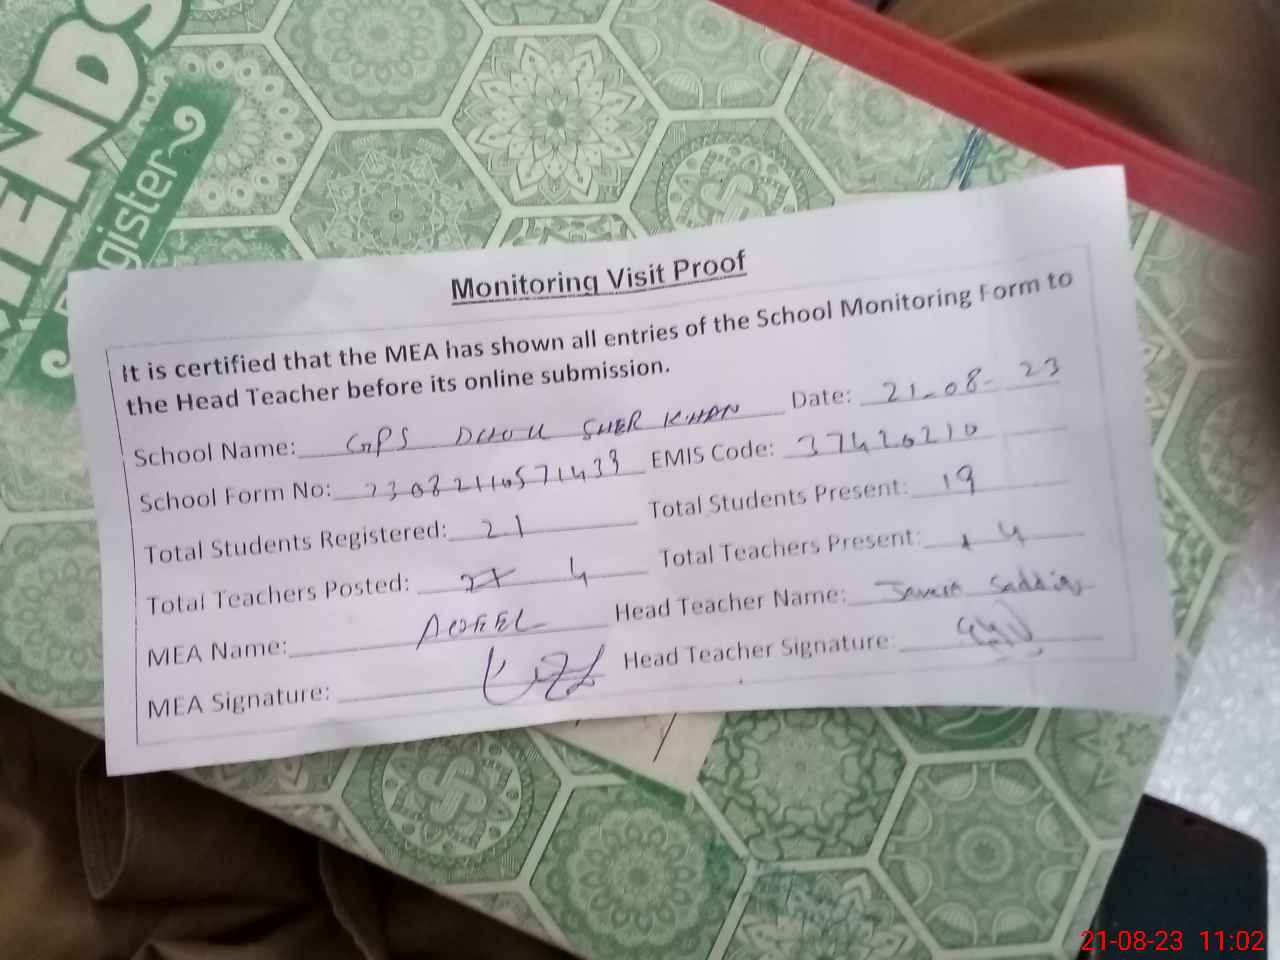 ENDS
Register
Monitoring Visit Proof
It is certified that the MEA has shown all entries of the School Monitoring Form to
the Head Teacher before its online submission.
School Name: GPS DHOK SHER KHAN Date: 21-08-23
School Form No: 23082110571433 EMIS Code: 37420210
Total Students Registered: 21 Total Students Present: 19
Total Teachers Posted: 4 Total Teachers Present: 4
MEA Name: Head Teacher Name: Javeria Saddiq
MEA Signature: Head Teacher Signature:
21-08-23 11:02